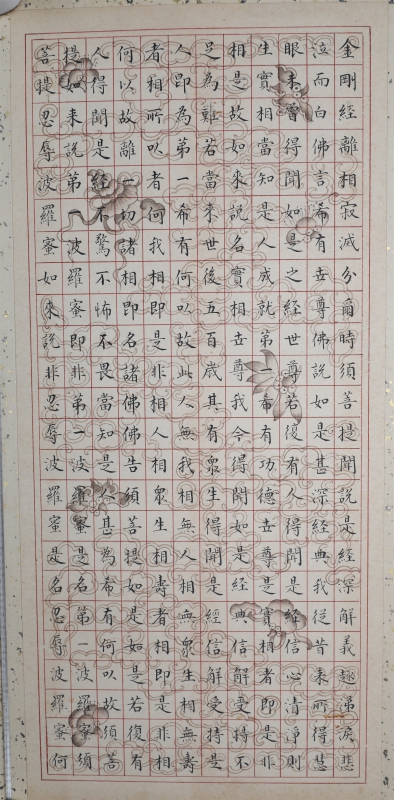 金剛經離相寂滅分爾時須菩提聞說是經深解義趣涕淚悲
泣而白佛言希有世尊佛說如是甚深經典我從昔來所得慧
眼未曾得聞如是之經世尊若復有人得聞是經信心清淨則
生實相當知是人成就第一希有功德世尊是實相者即是非
相是故如來說名實相世尊我今得聞如是經典信解受持不
足為難若當來世後五百歲其有眾生得聞是經信解受持是
人即為第一希有何以故此人無我相無人相無眾生相無壽
者相所以者何我相即是非相人相眾生相壽者相即是非相
何以故離一切諸相即名諸佛佛告須菩提如是如是若復有
人得聞是經不驚不怖不畏當知是人甚為希有何以故須菩
提如來說第一波羅蜜即非第一波羅蜜是名第一波羅蜜須
菩提忍辱波羅蜜如來說非忍辱波羅蜜是名忍辱波羅蜜何